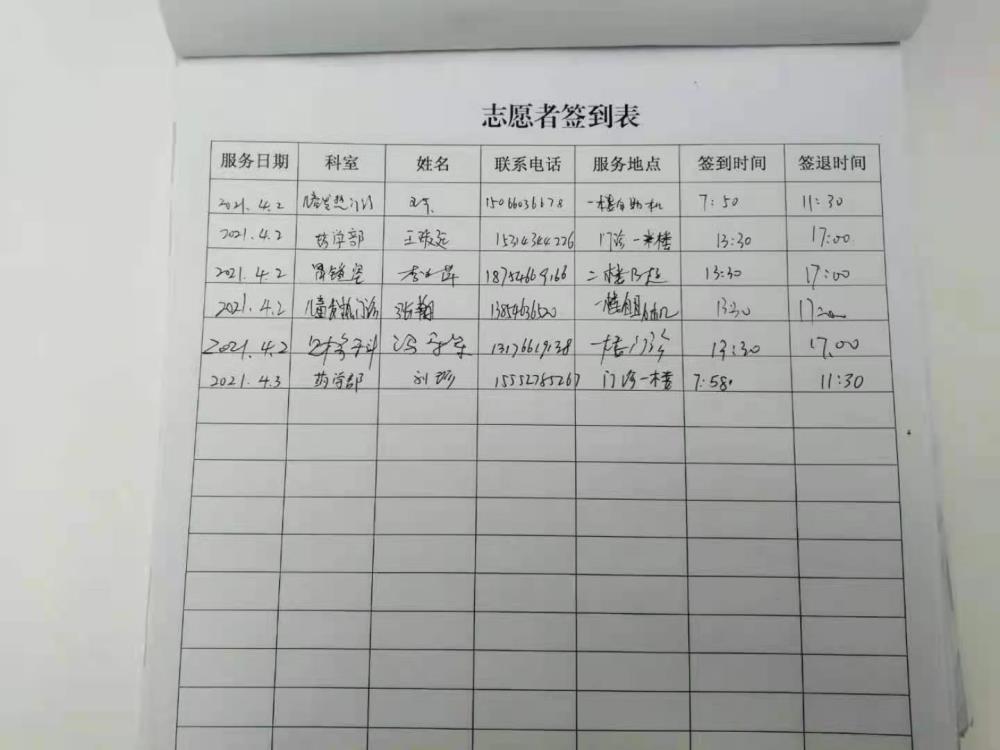 志愿者签到表
服务日期 科室 姓名 联系电话 服务地点 签到时间 签退时间
2021.4.2 儿童发热门诊 15066036678 一楼自助机 7:50 11:30
2021.4.2 药学部 15314344226 门诊一楼 13:30 17:00
2021.4.2 胃镜室 18754669166 二楼B超 13:30 17:00
2021.4.2 儿童发热门诊 张翱 13854636520 一楼自助机 13:30
2021.4.2 13176619138 一楼门诊 13:30 17.00
2021.4.3 药学部 刘 15552785267 门诊一楼 7:58 11:30